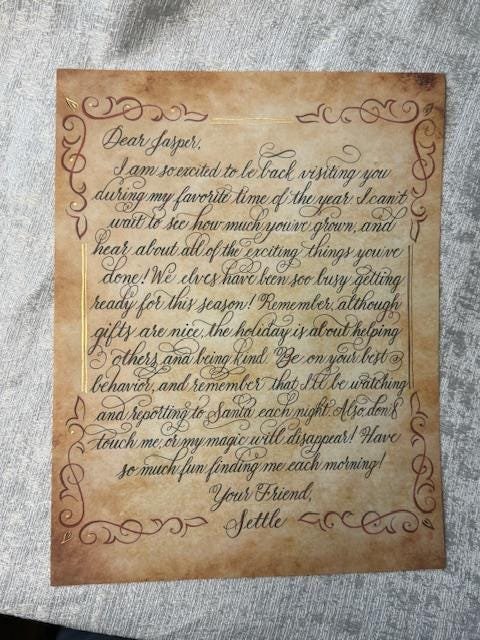 Dear Jasper,
I am so excited to be back visiting you
during my favorite time of the year. I can't
wait to see how much you've grown, and
hear about all of the exciting things you've
done! We elves have been soo busy getting
ready for this season! Remember, although
gifts are nice, the holiday is about helping
others and being kind. Be on your best
behavior, and remember that I'll be watching
and reporting to Santa each night. Also, don't
touch me, or my magic will disappear! Have
so much fun finding me each morning!
Your Friend,
Settle